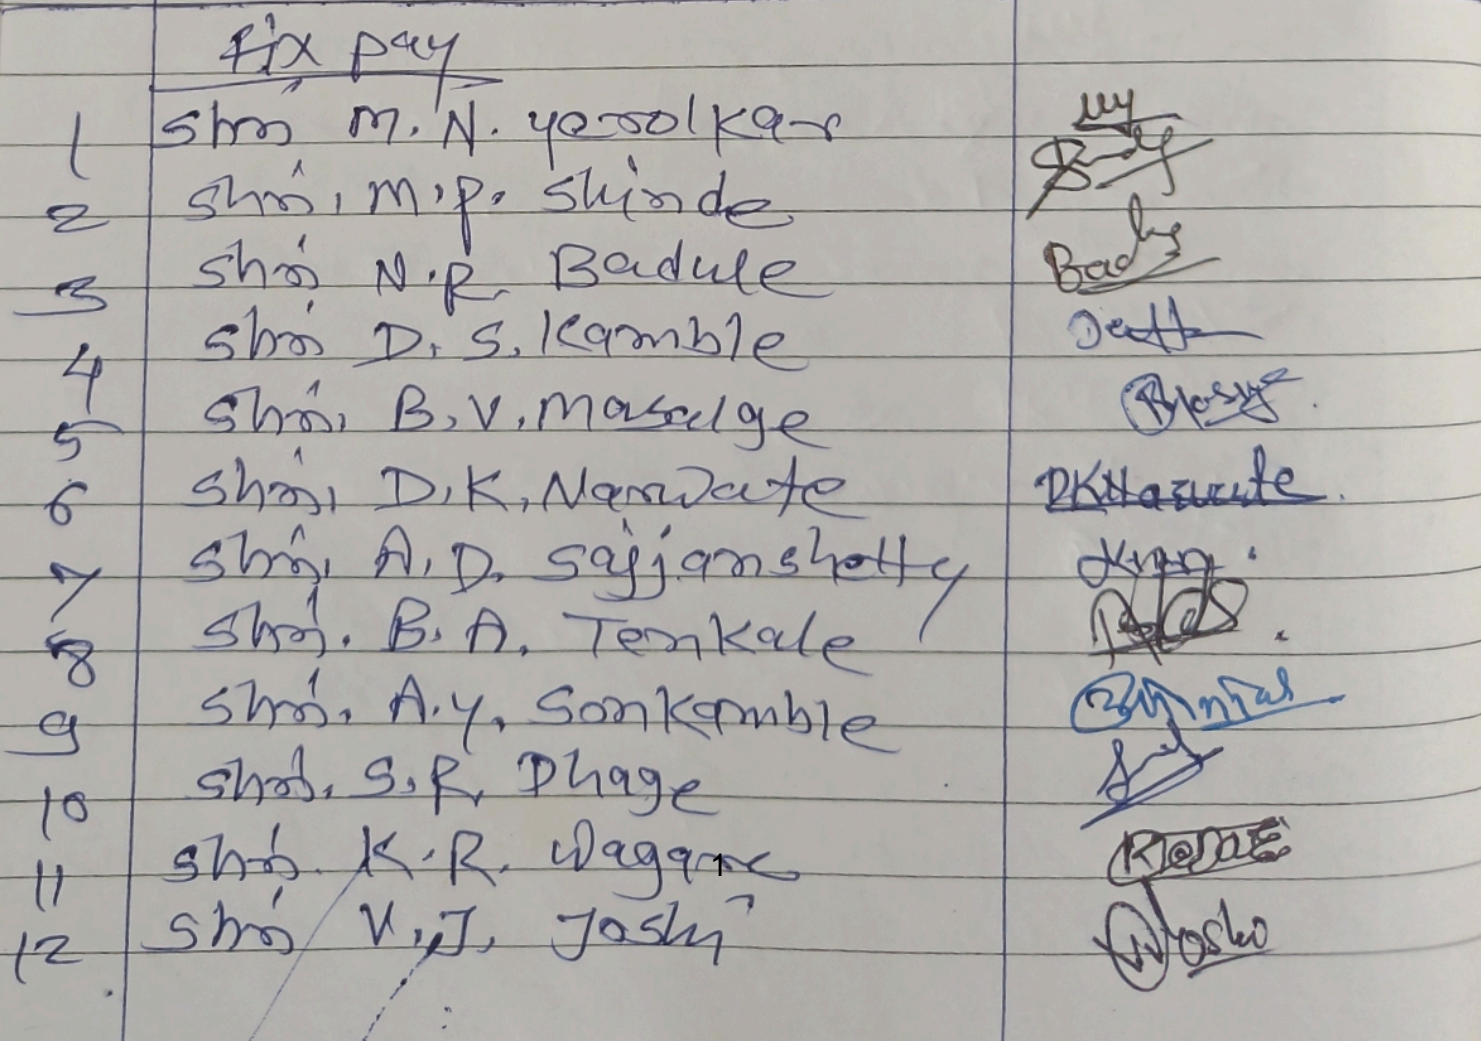 Fix pay
1 Shri M. N. yerolkar
2 Shri, M. P. Shinde
3 Shri N. R. Badule
4 Shri D. S. Kamble
5 Shri, B. V. Masalge
6 Shri, D. K. Narwate DKNarwate
7 Shri, A. D. Sajjanshetty
8 Shri. B. A. Tenkale
9 Shri. A. Y. Sonkamble
10 Shri. S. R. Dhage
11 Shri. K. R. Wagame
12 Shri V. J. Joshi